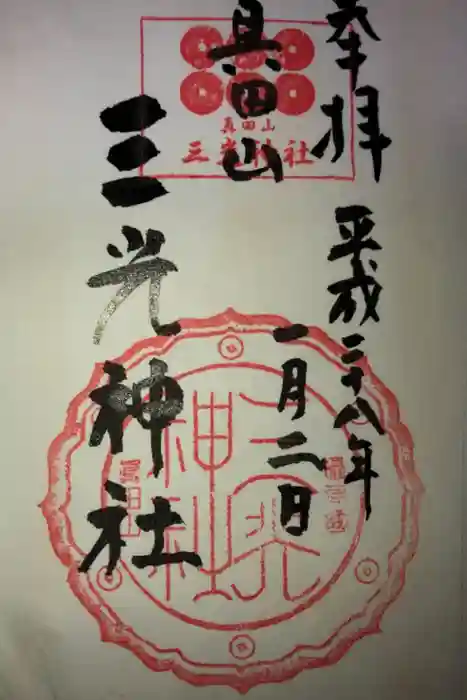 奉拝
平成二十八年
一月二日
真田山
三光神社
真田山
三光神社
三光神社